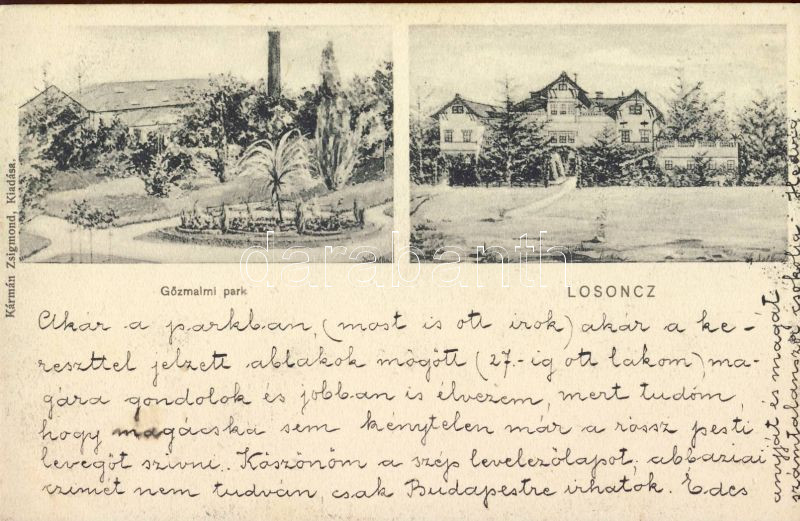 Kármán Zsigmond, Kiadása.
Gőzmalmi park
LOSONCZ
darabanth
Akár a parkban, (most is ott irok) akár a ke-
reszttel jelzett ablakok mögött (27.-ig ott lakom) ma-
gára gondolok és jobban is élvezem, mert tudom,
hogy magácska sem kénytelen már a rossz pesti
levegőt szivni. Köszönöm a szép levelezőlapot, abbaziai
czimét nem tudván, csak Budapestre irhatok. Édes
anyját és magát
számtalanszor csókolja Hedvig.